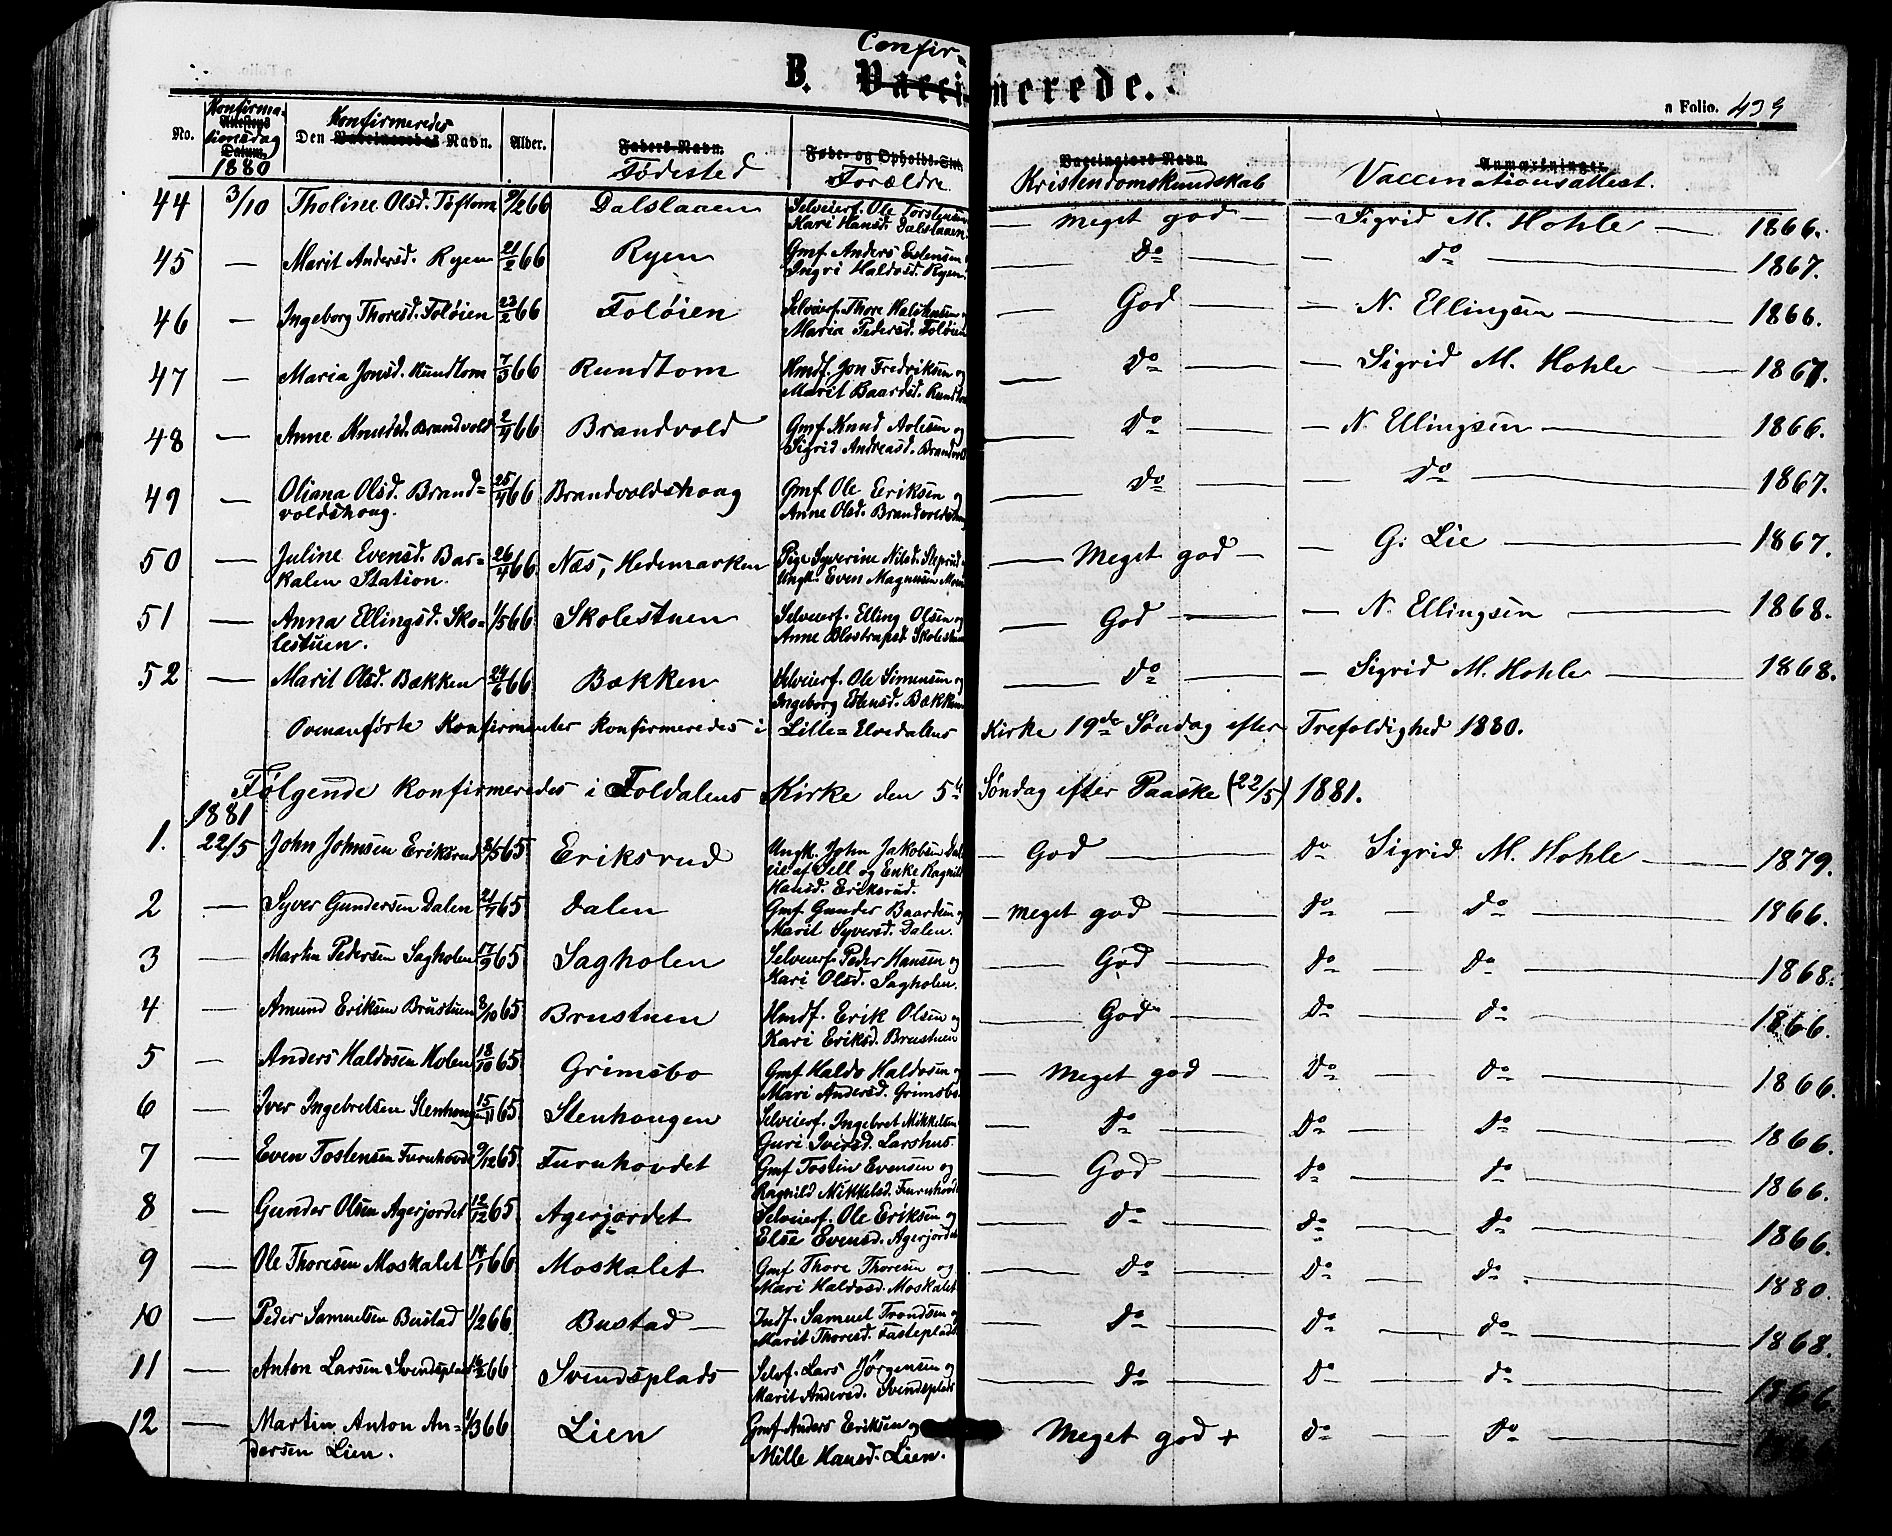 Confir-
B. Vaccinerede.
a Folio. 439
No. Konfirma-tionsdag Attestens Datum. Den Konfirmeredes Vaccineredes Navn. Alder. Faders Navn. Fødested Føde- og Opholds-Sted. Forældre. Vaccinatørs Navn. Kristendomskundskab Anmærkninger. Vaccinationsattest.
1880
44 3/10 Tholine Olsd. Tøftom 9/2 66 Dalslaaen Selveierf. Ole Torstensen Kari Hansd. Dalslaaen. — Meget god — — Sigrid M. Hohle — 1866.
45 — Marit Andersd. Ryen 21/2 66 Ryen Gmf. Anders Estensen Ingri Haldosd. Ryen — Do — — Do — 1867.
46 — Ingeborg Thoresd. Foløien 23/2 66 Foløien Selveierf. Thore Halstensen Maria Pedersd. Foløien — God — — N. Ellingsen — 1866.
47 — Maria Jonsd. Rundtom 7/3 66 Rundtom Hmdf. Jon Fredriksen og Marit Baardsd. Rundtom — Do — — Sigrid M. Hohle — 1867.
48 — Anne Knudsd. Brandvold 2/4 66 Brandvold Gmf. Knud Aolesen og Sigrid Andreasd. Brandvold — Do — — N. Ellingsen — 1866.
49 — Oliana Olsd. Brand= 25/4 66 Brandvoldshaug Gmf. Ole Eriksen og — Do — — Do — 1867.
voldshoug. Anne Olsd. Brandvoldshaug
50 — Juline Evensd. Bar= 26/4 66 Næs, Hedemarken Pige Syverine Nilsd. — Meget god — — G. Lie — 1867.
kalen Station. Ungk. Even Magnusen
51 — Anna Ellingsd. Sko= 1/5 66 Skolestuen Selveierf. Elling Olsen og — God — — N. Ellingsen — 1868.
lestuen. Anne Skolestuen
52 — Marit Olsd. Bækken 24/6 66 Bækken Selveierf. Ole Simensen og Ingeborg Estensd. Bækken — Do — — Sigrid M. Hohle — 1868.
Ovenanførte Konfirmanter konfirmeredes i Lille=Elvedalens Kirke 19de Søndag efter Trefoldighed 1880.
Følgende konfirmeredes i Foldalens Kirke den 5te Søndag efter Paaske (22/5) 1881.
1881
1. 22/5 John Johnsen Eriksrud 2/5 65 Eriksrud Ungk. John Jakobsen — God — Do Sigrid M. Hohle — 1879.
eie af Sell og Enke Ragnild
Hansd. Eriksrud.
2 — Syver Gundersen Dalen 21/7 65 Dalen Gmf. Gunder Baardsen og Marit Syversd. Dalen. — Meget god — Do — Do — 1866.
3 — Martin Pedersen Sagholen 17/9 65 Sagholen Selveierf. Peder Hansen og Kari Olsd. Sagholen. — God — Do — Do — 1868.
4 — Amund Eriksen Brustuen 8/10 65 Brustuen Hmdf. Erik Olsen og Kari Eriksd. Brustuen — God — Do — Do — 1866.
5 — Anders Haldosen Holen 18/10 65 Grimsbo Gmf. Haldo Haldosen og Mari Andersd. Grimsbo. — Meget god — Do — Do — 1866.
6 — Iver Ingebretsen Stenhoug 15/11 65 Stenhougen Selveierf. Ingebret Mikkelsen Guri Iversd. Larshus. — Do — Do — Do — 1866.
7 — Even Tostensen Furuhovde 9/12 65 Furuhovdet Gmf. Tostin Evensen og Ragnild Mikkelsd. Furuhovde — God — Do — Do — 1866.
8 — Gunder Olsen Agerjordet 12/12 65 Agerjordet Selveierf. Ole Eriksen og Else Evensd. Agerjordet — Do — Do — Do — 1866.
9 — Ole Thoresen Moskalet 14/1 66 Moskalet Gmf. Thore Thoresen og Mari Haldosd. Moskalet — Do — Do — Do — 1880.
10 — Peder Samuelsen Bustad 1/2 66 Bustad — Indf. Samuel Trondsen og Marit Thoresd. — Do — Do — Do — 1868.
11 — Anton Larsen Svendsplads 66 Svendsplads Selvf. Lars Jørgensen og Marit Andersd. Svendsplads — Do — Do — Do — 1866
12 — Martin Anton An= 1/3 66 Lien Gmf. Anders Eriksen og Meget god + Do — Do — 1866
dersen Lien. Mille Hansd. Lien.